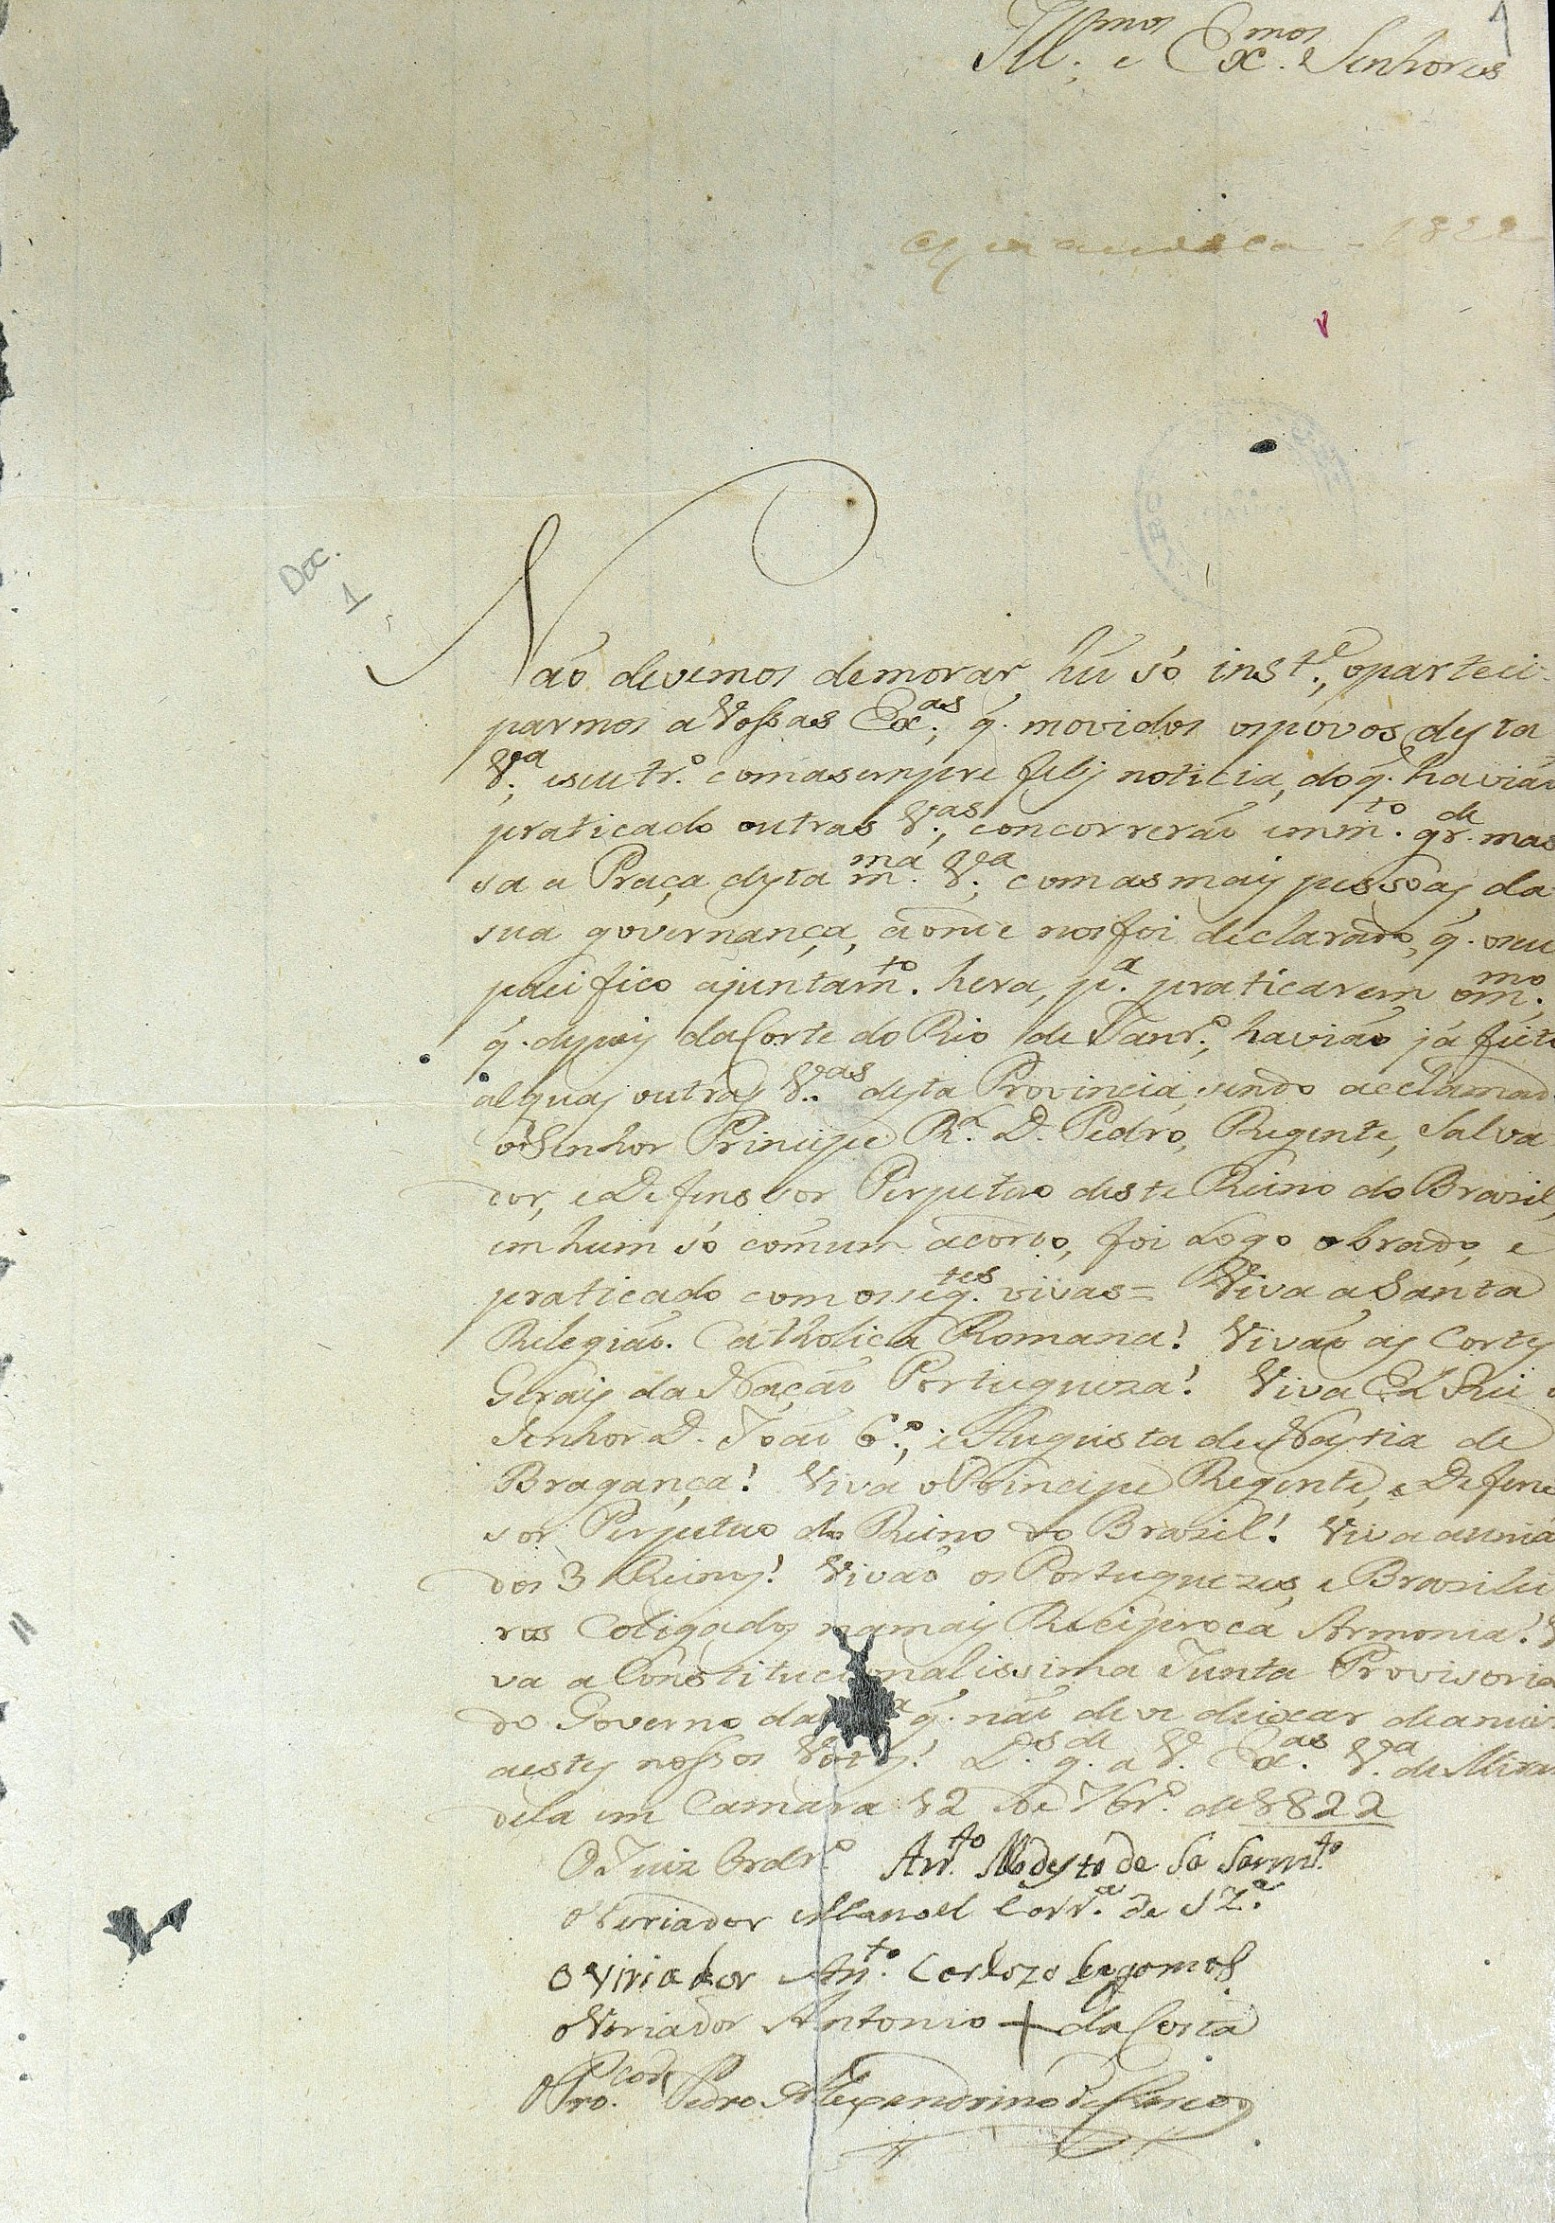 1
Ill.mos e Ex.mos Senhores
1822
Doc.
1
Não devemos demorar hũ só inst.e, oparteci-
parmos a Vossas Ex.as, q. movidos os póvos desta
V.a, e seu tr.o com a sempre feliz noticia, do q. havião
praticado outras V.as, concorrerão em m.to gr.de mas
sa a Praça desta m.ma V.a, com as mais pessoas da
sua governança, aonde nos foi declarado, q. o seu
pacifico ajuntam.to hera, p.a praticarem o m.mo
q. depois da Corte do Rio de Janr.o, havião já feit
alguas outras V.as desta Provincia, sendo acclamad
o Senhor Principe R.l D. Pedro, Regente, Salva
dor, e Defensor Perpetuo deste Reino do Brazil,
em hum só cómum acordo, foi Logo obrado, e
praticado com os seg.tes vivas = Viva a Santa
Relegião Catholica Romana! Vivão as Cortes
Gerais da Nação Portugueza! Viva El Rei o
Senhor D. João 6.o, e Augusta de Nastia de
Bragança! Viva o Principe Regente, e Defen
sor Perpetuo do Reino do Brazil! Viva a uniã
dos 3 Reinos! Vivão os Portuguezes, e Brazilei
ros Coligados na mais Reciproca Armonia! V
va a Constitucionalissima Junta Provisoria
do Governo da q. não deve deixar de anuir
aestes nossos Votos! D.s g.de a V. Ex.as V.a de Miran
dela em Camara 12 de 7br.o de 1822
O Juiz Ordr.o Ant.to Modesto de Sa Sarm.to
O Veriador Manoel Corr.a de Sz.a
O Viriador An.to Cardozo
O Veriador Antonio + da Costa
O Pro.cor Pedro Alexandrino de